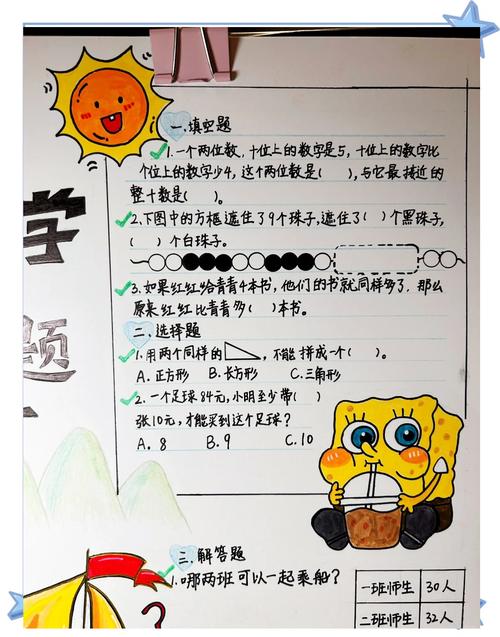 一.填空题
1.一个两位数,十位上的数字是5,十位上的数字比
个位上的数字少4,这个两位数是( ),与它最接近的
整十数是( )。
2.下图中的方框遮住了9个珠子,遮住了( )个黑珠子,
( )个白珠子。
3.如果红红给青青4本书,他们的书就同样多了,那么
原来红红比青青多( )本书。
二.选择题
1.用两个同样的 ,不能拼成一个( )。
A.正方形 B.长方形 C.三角形
2.一个足球84元,小明至少带( )
张10元,才能买到这个足球?
A. 8 B. 9 C. 10
学
题
三.解答题
1.哪两班可以一起乘船?
一班师生 30人
二班师生 32人
?